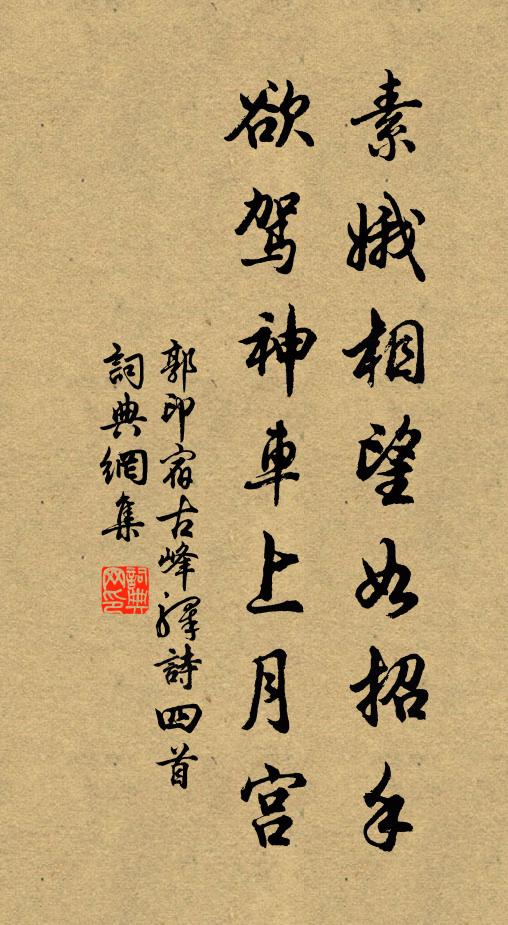 素娥相望如招手
欲駕神車上月宮
郭印宿古峰驛詩四首
詞典網集
詞典
网印